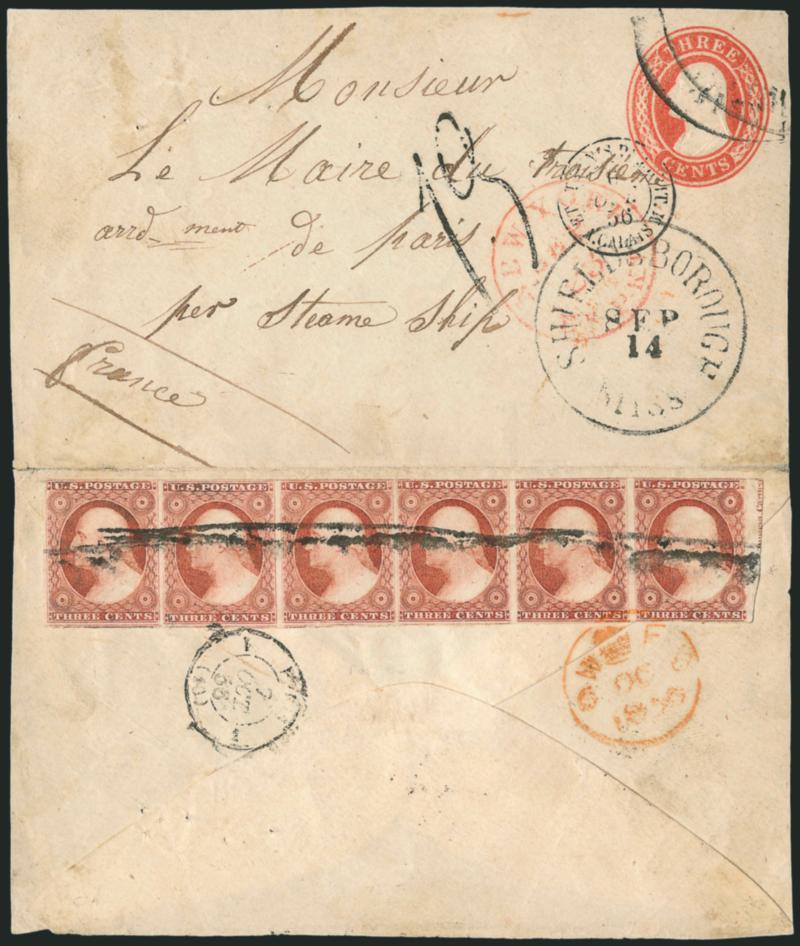 THREE
CENTS
Monsieur
Le Maire du troisieme
arrd-ment de paris
per Steame Ship
France
19
NEW YORK
ET. CALAIS
SHIELDSBOROUGH
SEP
14
MISS
U.S. POSTAGE U.S. POSTAGE U.S. POSTAGE U.S. POSTAGE U.S. POSTAGE U.S. POSTAGE
THREE CENTS THREE CENTS THREE CENTS THREE CENTS THREE CENTS THREE CENTS
2
OCT
56